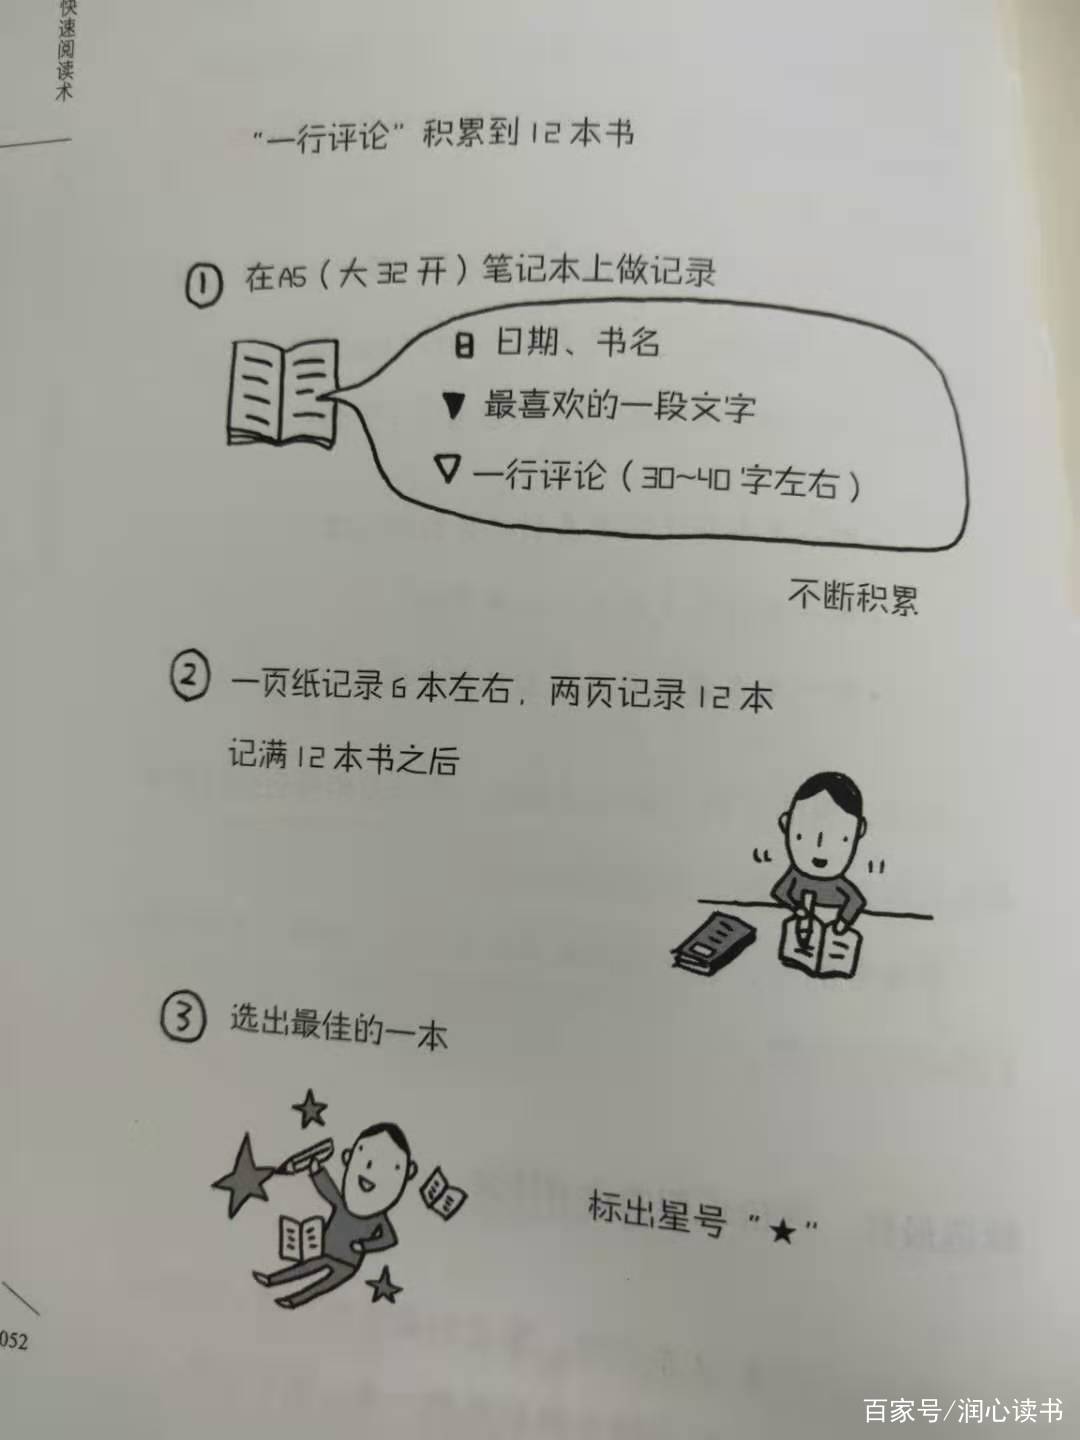 快速阅读术
“一行评论”积累到12本书
① 在A5（大32开）笔记本上做记录
日 日期、书名
▼ 最喜欢的一段文字
▽ 一行评论（30~40字左右）
不断积累
② 一页纸记录6本左右，两页记录12本
记满12本书之后
③ 选出最佳的一本
标出星号“★”
052
百家号/润心读书